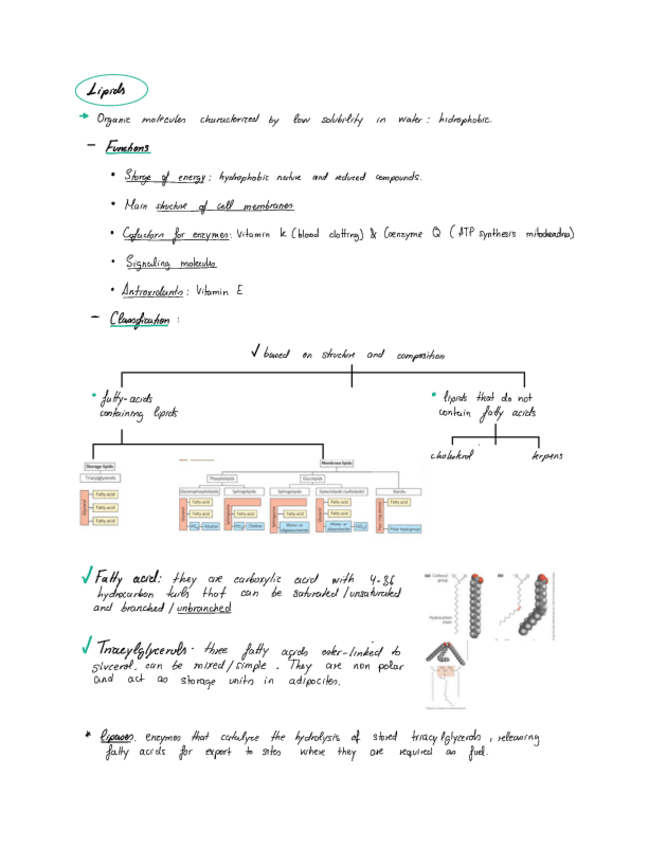 Lipids
→ Organic molecules characterized by low solubility in water : hidrophobic.
– Functions
• Storge of energy : hydrophobic nature and reduced compounds.
• Main structure of cell membranes
• Cofactors for enzymes : Vitamin k (blood clotting) & Coenzyme Q ( ATP synthesis mitochondria)
• Signaling molecules
• Antioxidants : Vitamin E
– Classification :
✓ based on structure and composition
• fatty-acids
containing lipids
• lipids that do not
contain fatty acids
cholesterol
terpens
Storage lipids
Membrane lipids
Triacylglycerols
Phospholipids
Glycolipids
Glycerophospholipids
Sphingolipids
Sphingolipids
Galactolipids (sulfolipids)
Glycerol
Fatty acid
Fatty acid
Fatty acid
Fatty acid
Fatty acid
PO₄
Alcohol
Fatty acid
PO₄
Choline
Fatty acid
Mono- or
oligosaccharide
Fatty acid
Fatty acid
Mono- or
disaccharide
✓ Fatty acid : they are carboxylic acid with 4-36
hydrocarbon tails that can be saturated /unsaturated
and branched / unbranched
(a) Carboxyl
group
(b)
Hydrocarbon
chain
✓ Triacylglycerols - three fatty acids ester-linked to
glycerol. can be mixed/simple . They are non polar
and act as storage units in adipocites.
* lipases. enzymes that catalyze the hydrolysis of stored triacylglycerols , releasing
fatty acids for export to sites where they are required as fuel.